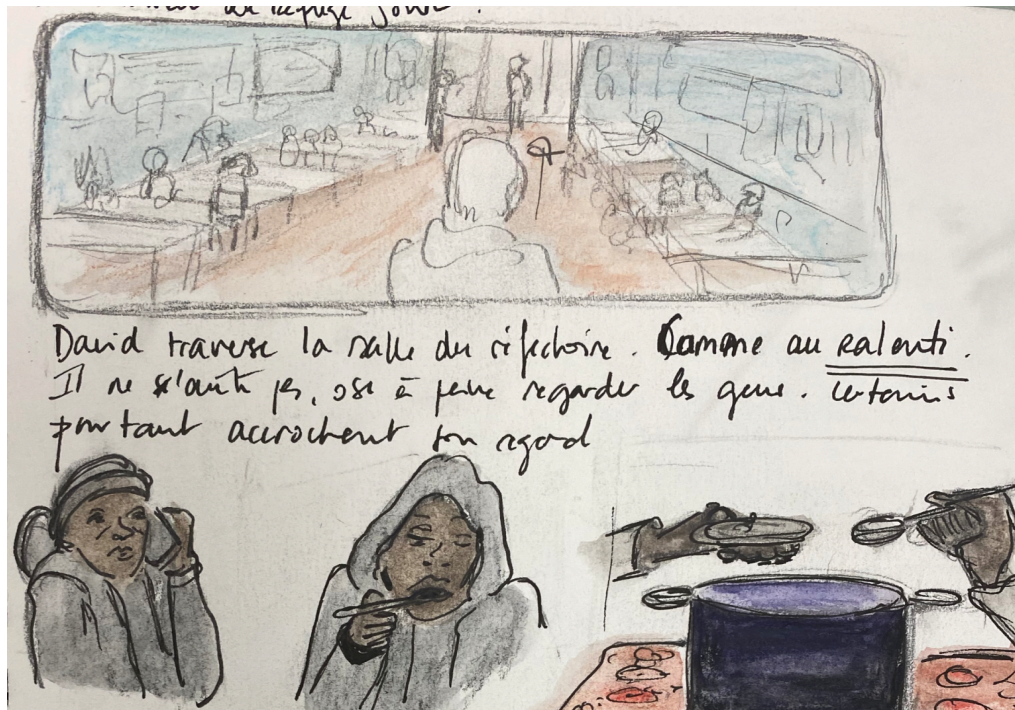 du refuge jour.
David traverse la salle du réfectoire. Comme au ralenti.
Il ne s'arrête pas, ose à peine regarder les gens. certains
pourtant accrochent son regard